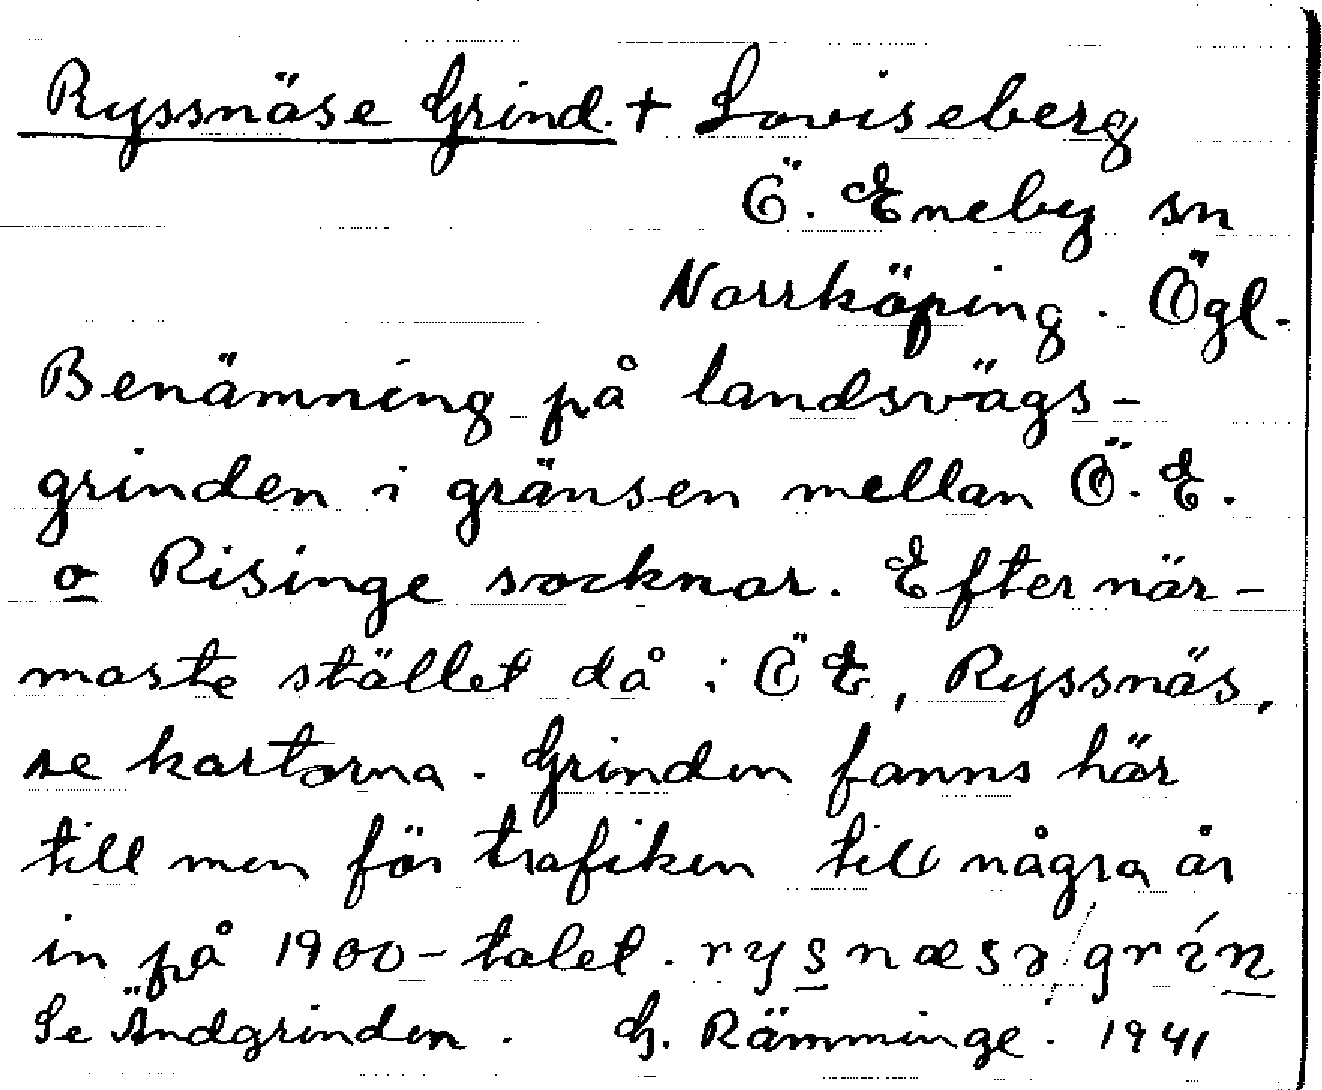 Ryssnäse Grind. + Loviseberg
Ö. Eneby sn
Norrköping. Ögl.
Benämning på landsvägs-
grinden i gränsen mellan Ö. E.
o Risinge socknar. Efter när-
maste stället då i Ö E, Ryssnäs,
se kartorna. Grinden fanns här
till men för trafiken till några år
in på 1900-talet. rysnæsəgrín
Se Ändgrinden. G. Rämminge. 1941